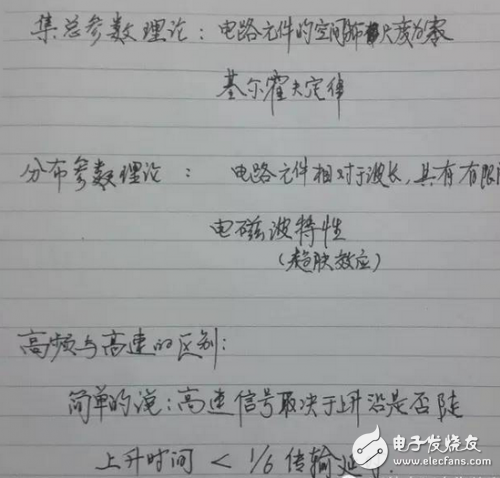 集总参数理论：电路元件的空间分布尺度为零
基尔霍夫定律
分布参数理论：电路元件相对于波长，具有有限
电磁波特性
（趋肤效应）
高频与高速的区别：
简单的说：高速信号取决于上升沿是否陡
上升时间 < 1/6 传输延
电子发烧友
www.elecfans.com